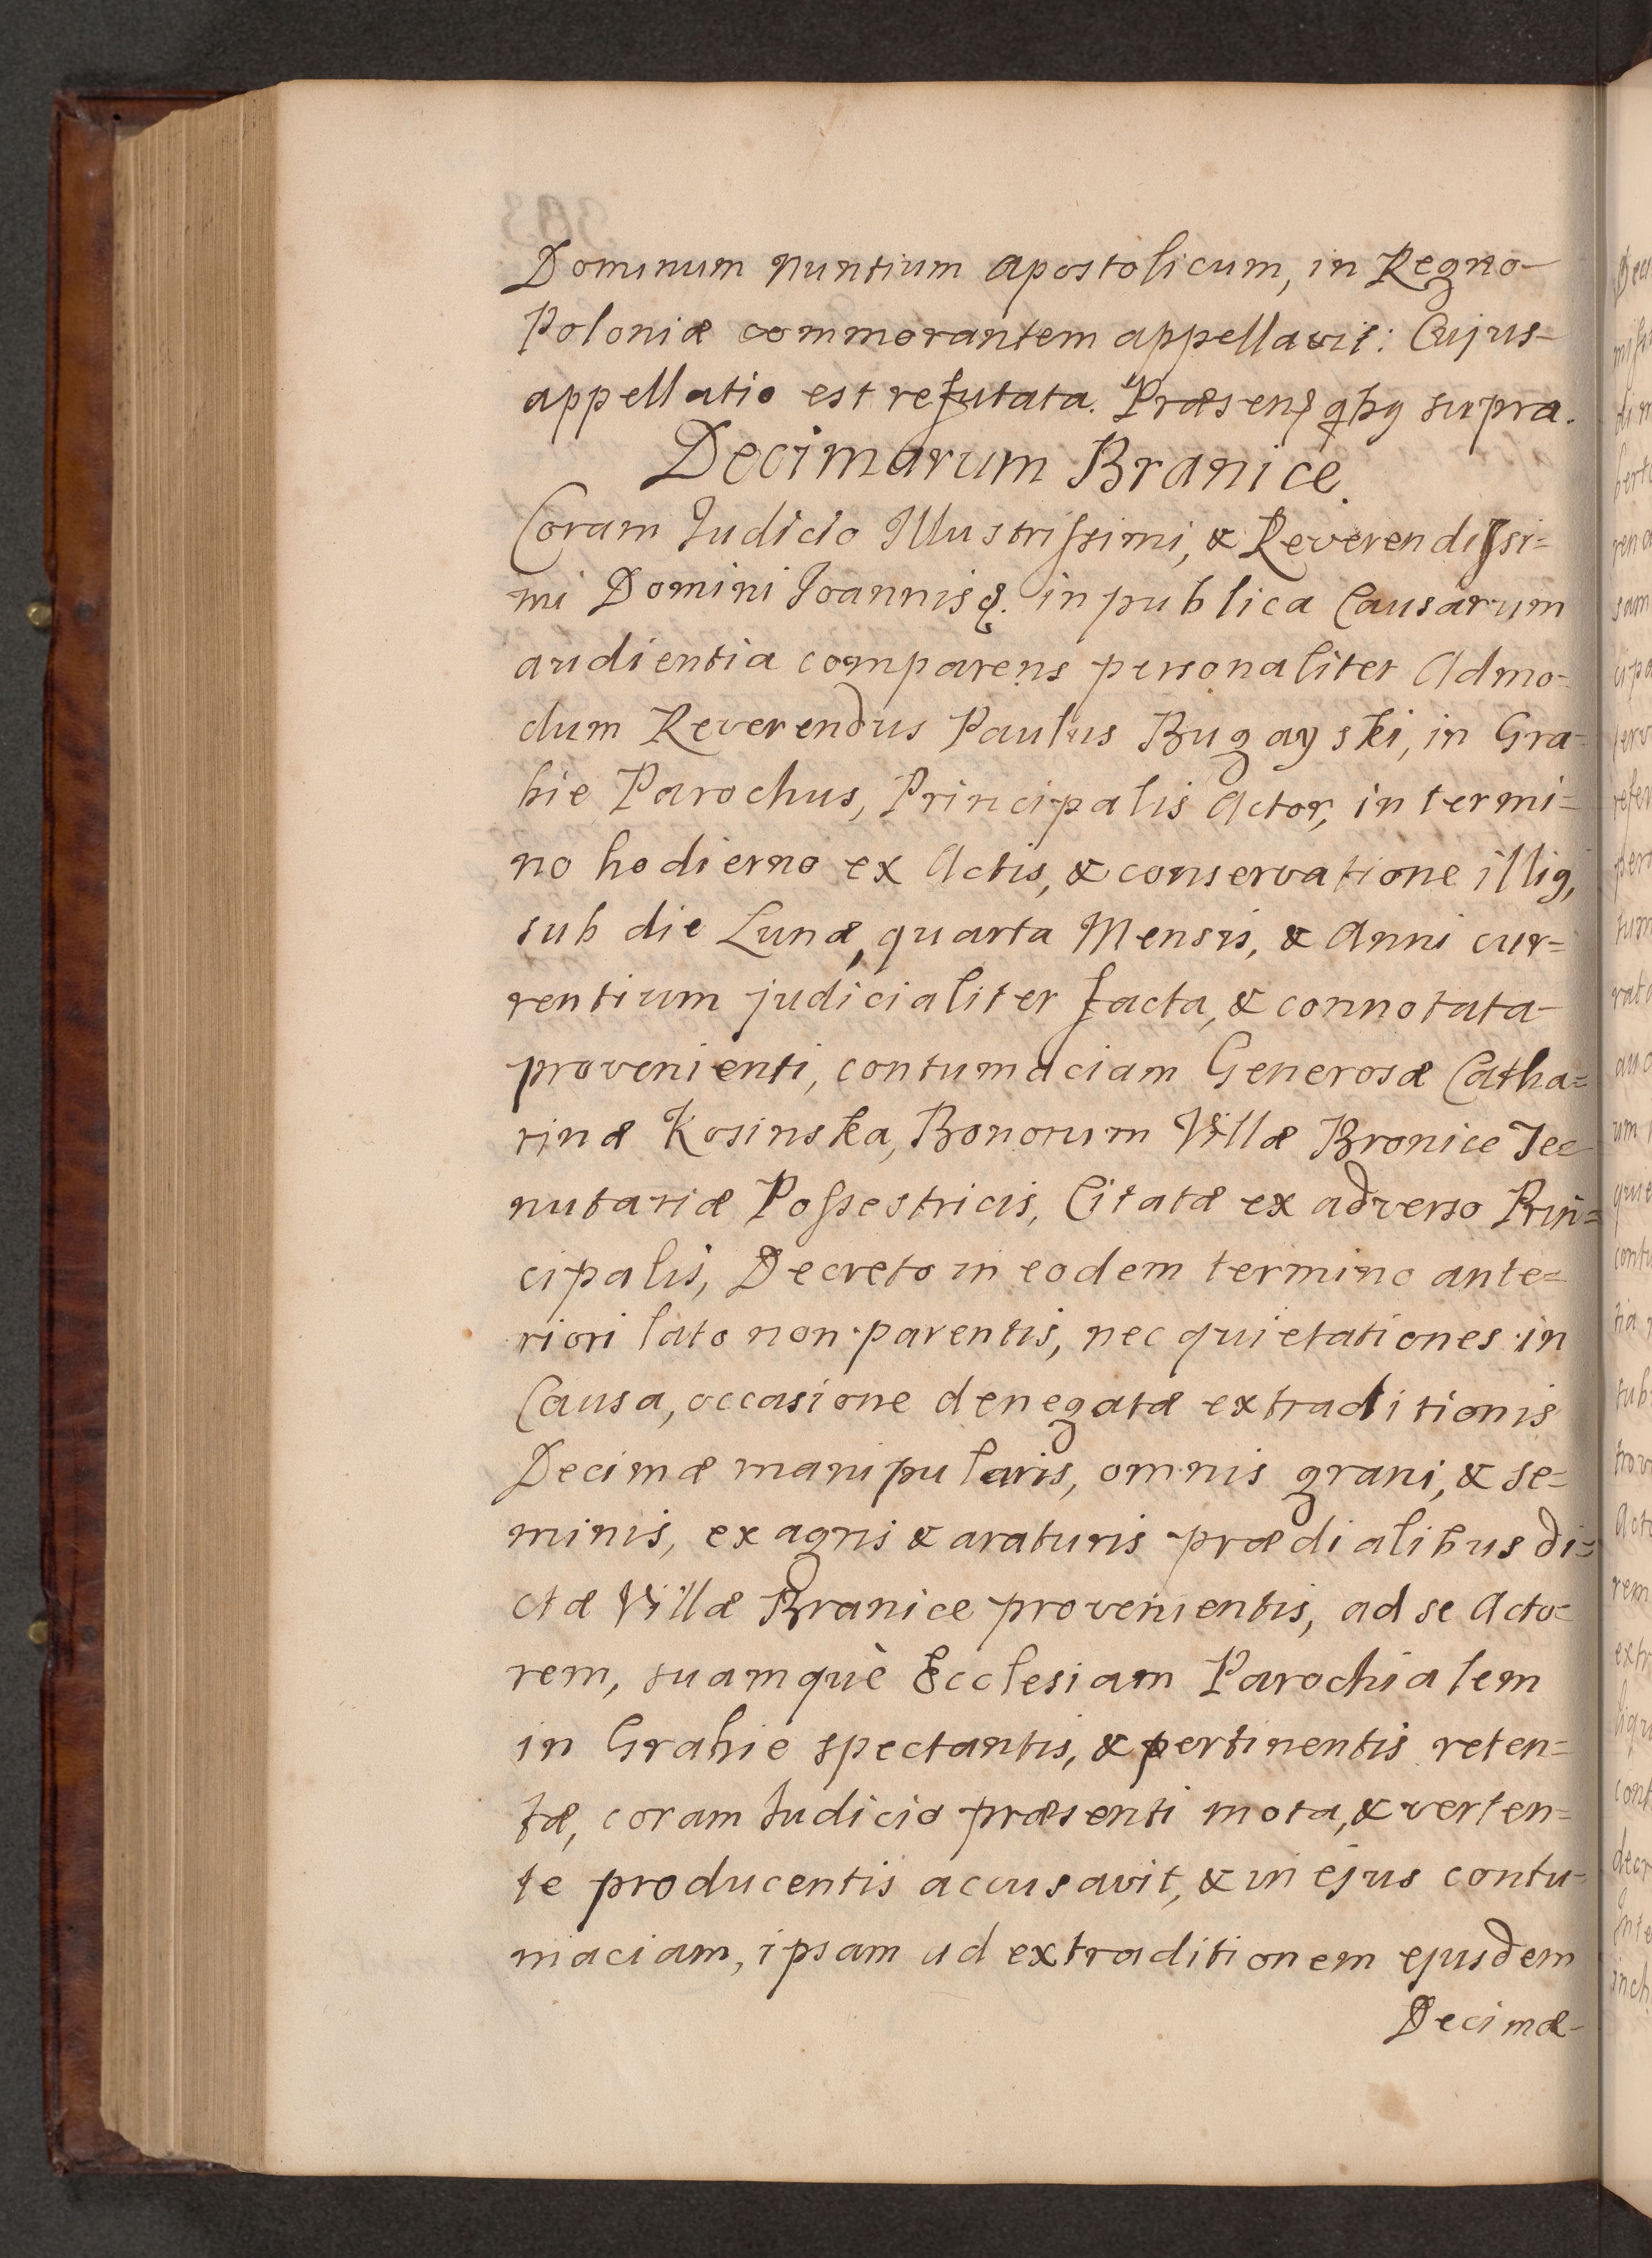 Dominum Nuntium Apostolicum, in Regno-
Poloniæ commorantem appellavit: Cujus-
appellatio est refutata. Præsen supra.
Decimarum Branice.
Coram Judicio Illustrissimi, & Reverendissi=
mi Domini Joannis &. in publica Causarum
audientia comparens personaliter Admo=
dum Reverendus Paulus Bugayski, in Gra=
bie Parochus, Principalis Actor, in termi=
no hodierno ex Actis, & conservatione illig,
sub die Lunæ, quarta Mensis, & Anni cur=
rentium judicialiter facta, & connotata-
provenienti, contumaciam Generosæ Catha=
rinæ Kosinska, Bonorum Villæ Bronice Te=
nutariæ Possestricis, Citatæ ex adverso Prin=
cipalis, Decreto in eodem termino ante=
riori lato non parentis, nec quietationes in
Causa, occasione denegatæ extraditionis
Decimæ manipularis, omnis grani, & se=
minis, ex agris & araturis prædialibus di=
ctæ Villæ Branice provenientis, ad se Acto=
rem, suamquè Ecclesiam Parochialem
in Grabie spectantis, & pertinentis reten=
tæ, coram Judicio præsenti mota, & verten=
te producentis accusavit, & in ejus contu=
maciam, ipsam ad extraditionem ejusdem
Decimæ-